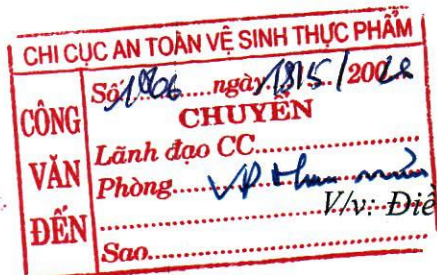 CHI CỤC AN TOÀN VỆ SINH THỰC PHẨM
CÔNG VĂN ĐẾN
Số ngày 18/5/200
CHUYỂN
Lãnh đạo CC
Phòng VP
V/v: Điề
Sao